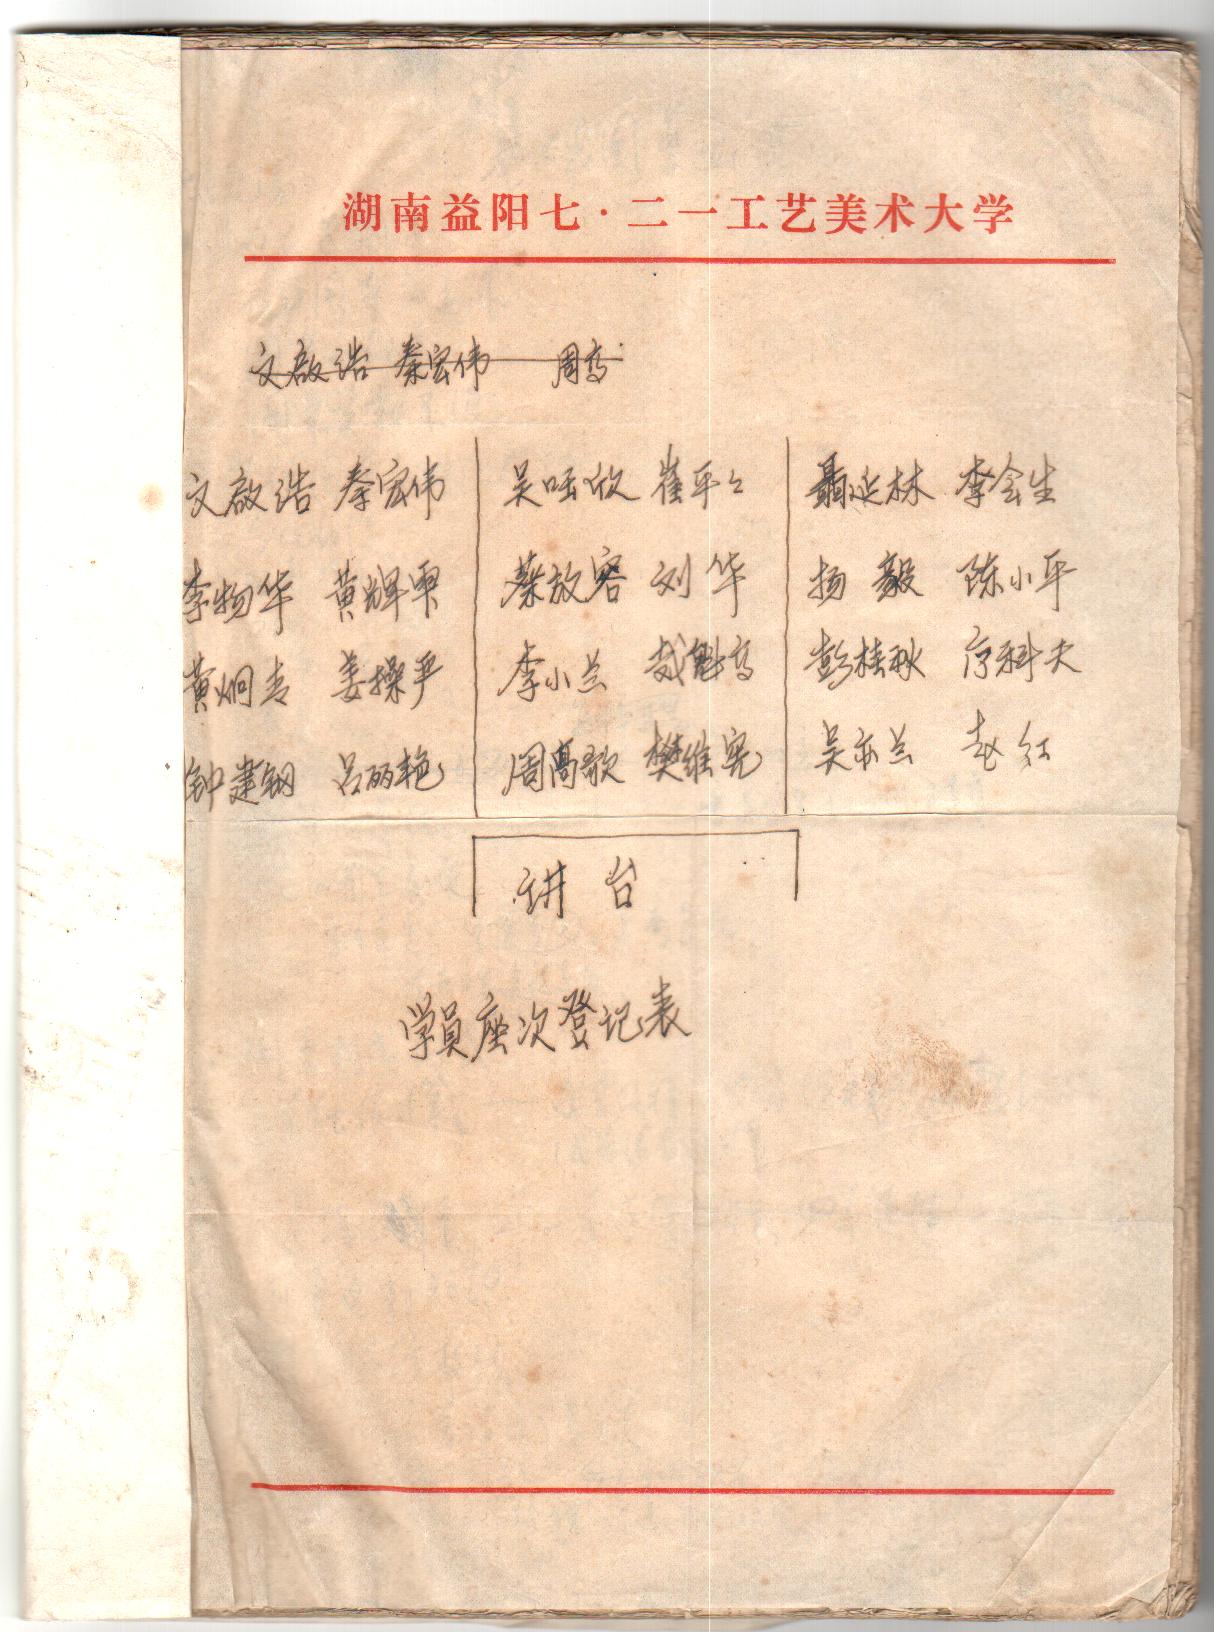 湖南益阳七·二一工艺美术大学
文啟浩 秦宏伟 周高
文啟浩 秦宏伟 吴 欣 崔平 聂延林 李会生
李物华 黄辉军 蔡放容 刘华 扬毅 陈小平
黄炯 姜操严 李小兰 魁高 彭桂秋 科夫
钟建钢 吕丽艳 周高歌 樊维宪 吴亦兰 赵红
讲台
学员座次登记表